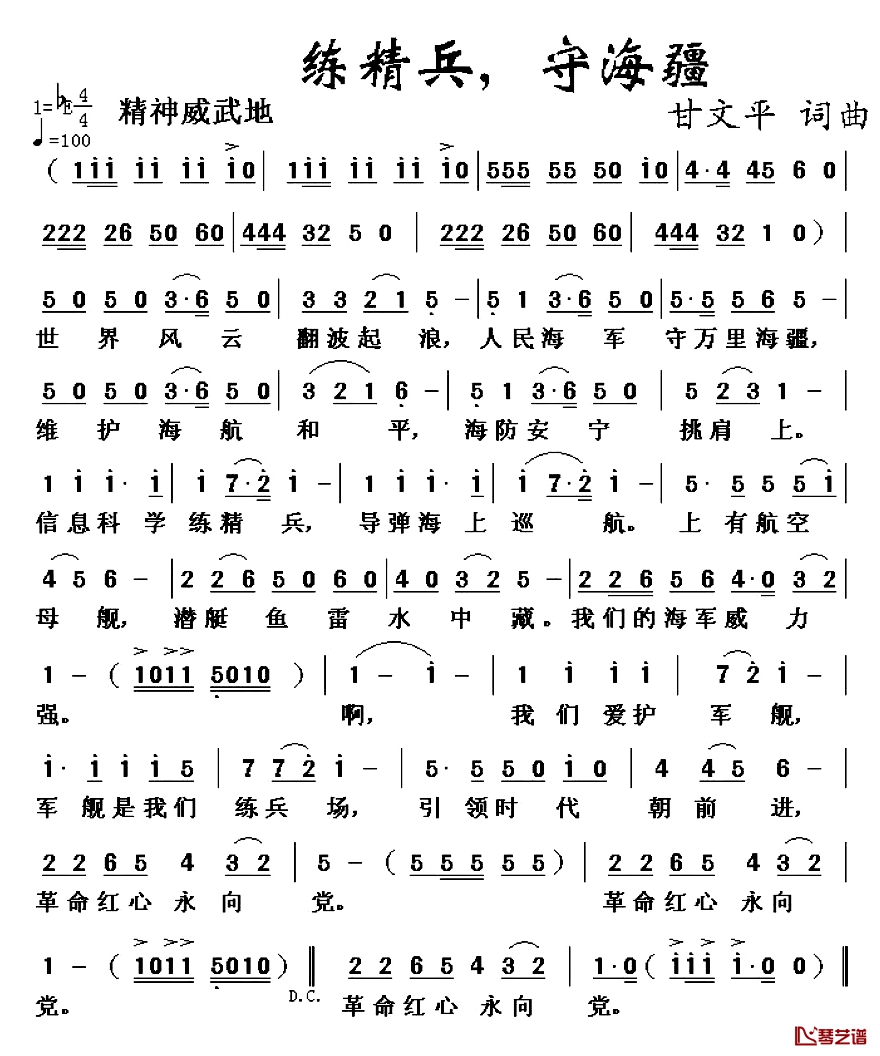 练精兵，守海疆
1=♭E 4/4 精神威武地 甘文平 词曲
♩=100
（1i̇i̇ i̇i̇ i̇i̇ i̇0 | 1i̇i̇ i̇i̇ i̇i̇ i̇0 | 555 55 50 i̇0 | 4·4 45 6 0 |
222 26 50 60 | 444 32 5 0 | 222 26 50 60 | 444 32 1 0）|
5 0 5 0 3·6 5 0 | 3 3 2 1 5̣ – | 5̣ 1 3·6 5 0 | 5·5 5 6 5 – |
世 界 风 云 翻波起 浪，人民海 军 守万里海疆，
5 0 5 0 3·6̣ 5 0 | 3 2 1 6̣ – | 5̣ 1 3·6̣ 5 0 | 5 2 3 1 – |
维 护 海 航 和 平，海防安 宁 挑肩 上。
1 i̇ i̇· i̇ | i̇ 7·2̇ i̇ – | 1 i̇ i̇· i̇ | i̇ 7·2̇ i̇ – | 5· 5 5 5 i̇ |
信息科 学 练精 兵，导弹海 上 巡 航。上 有航空
4 5 6 – | 2 2 6 5 0 6 0 | 4 0 3 2 5 – | 2 2 6 5 6 4·0 3 2 |
母 舰，潜艇 鱼 雷 水 中 藏。我们的海军威 力
1 – （1011 5̣010）| 1 – i̇ – | 1 i̇ i̇ i̇ | 7 2̇ i̇ – |
强。 啊， 我 们 爱护 军 舰，
i̇· i̇ i̇ i̇ 5 | 7 7 2̇ i̇ – | 5· 5 5 0 i̇ 0 | 4 4 5 6 – |
军 舰是我们 练兵 场，引 领时 代 朝 前 进，
2 2 6 5 4 3 2 | 5 – （5 5 5 5 5）| 2 2 6 5 4 3 2 |
革命红心 永 向 党。 革命红心 永 向
1 – （1011 5̣010）‖ 2 2 6 5 4 3 2 | 1·0（i̇i̇i̇ i̇·0 0）‖
党。 D.C. 革命红心 永向 党。
琴艺谱